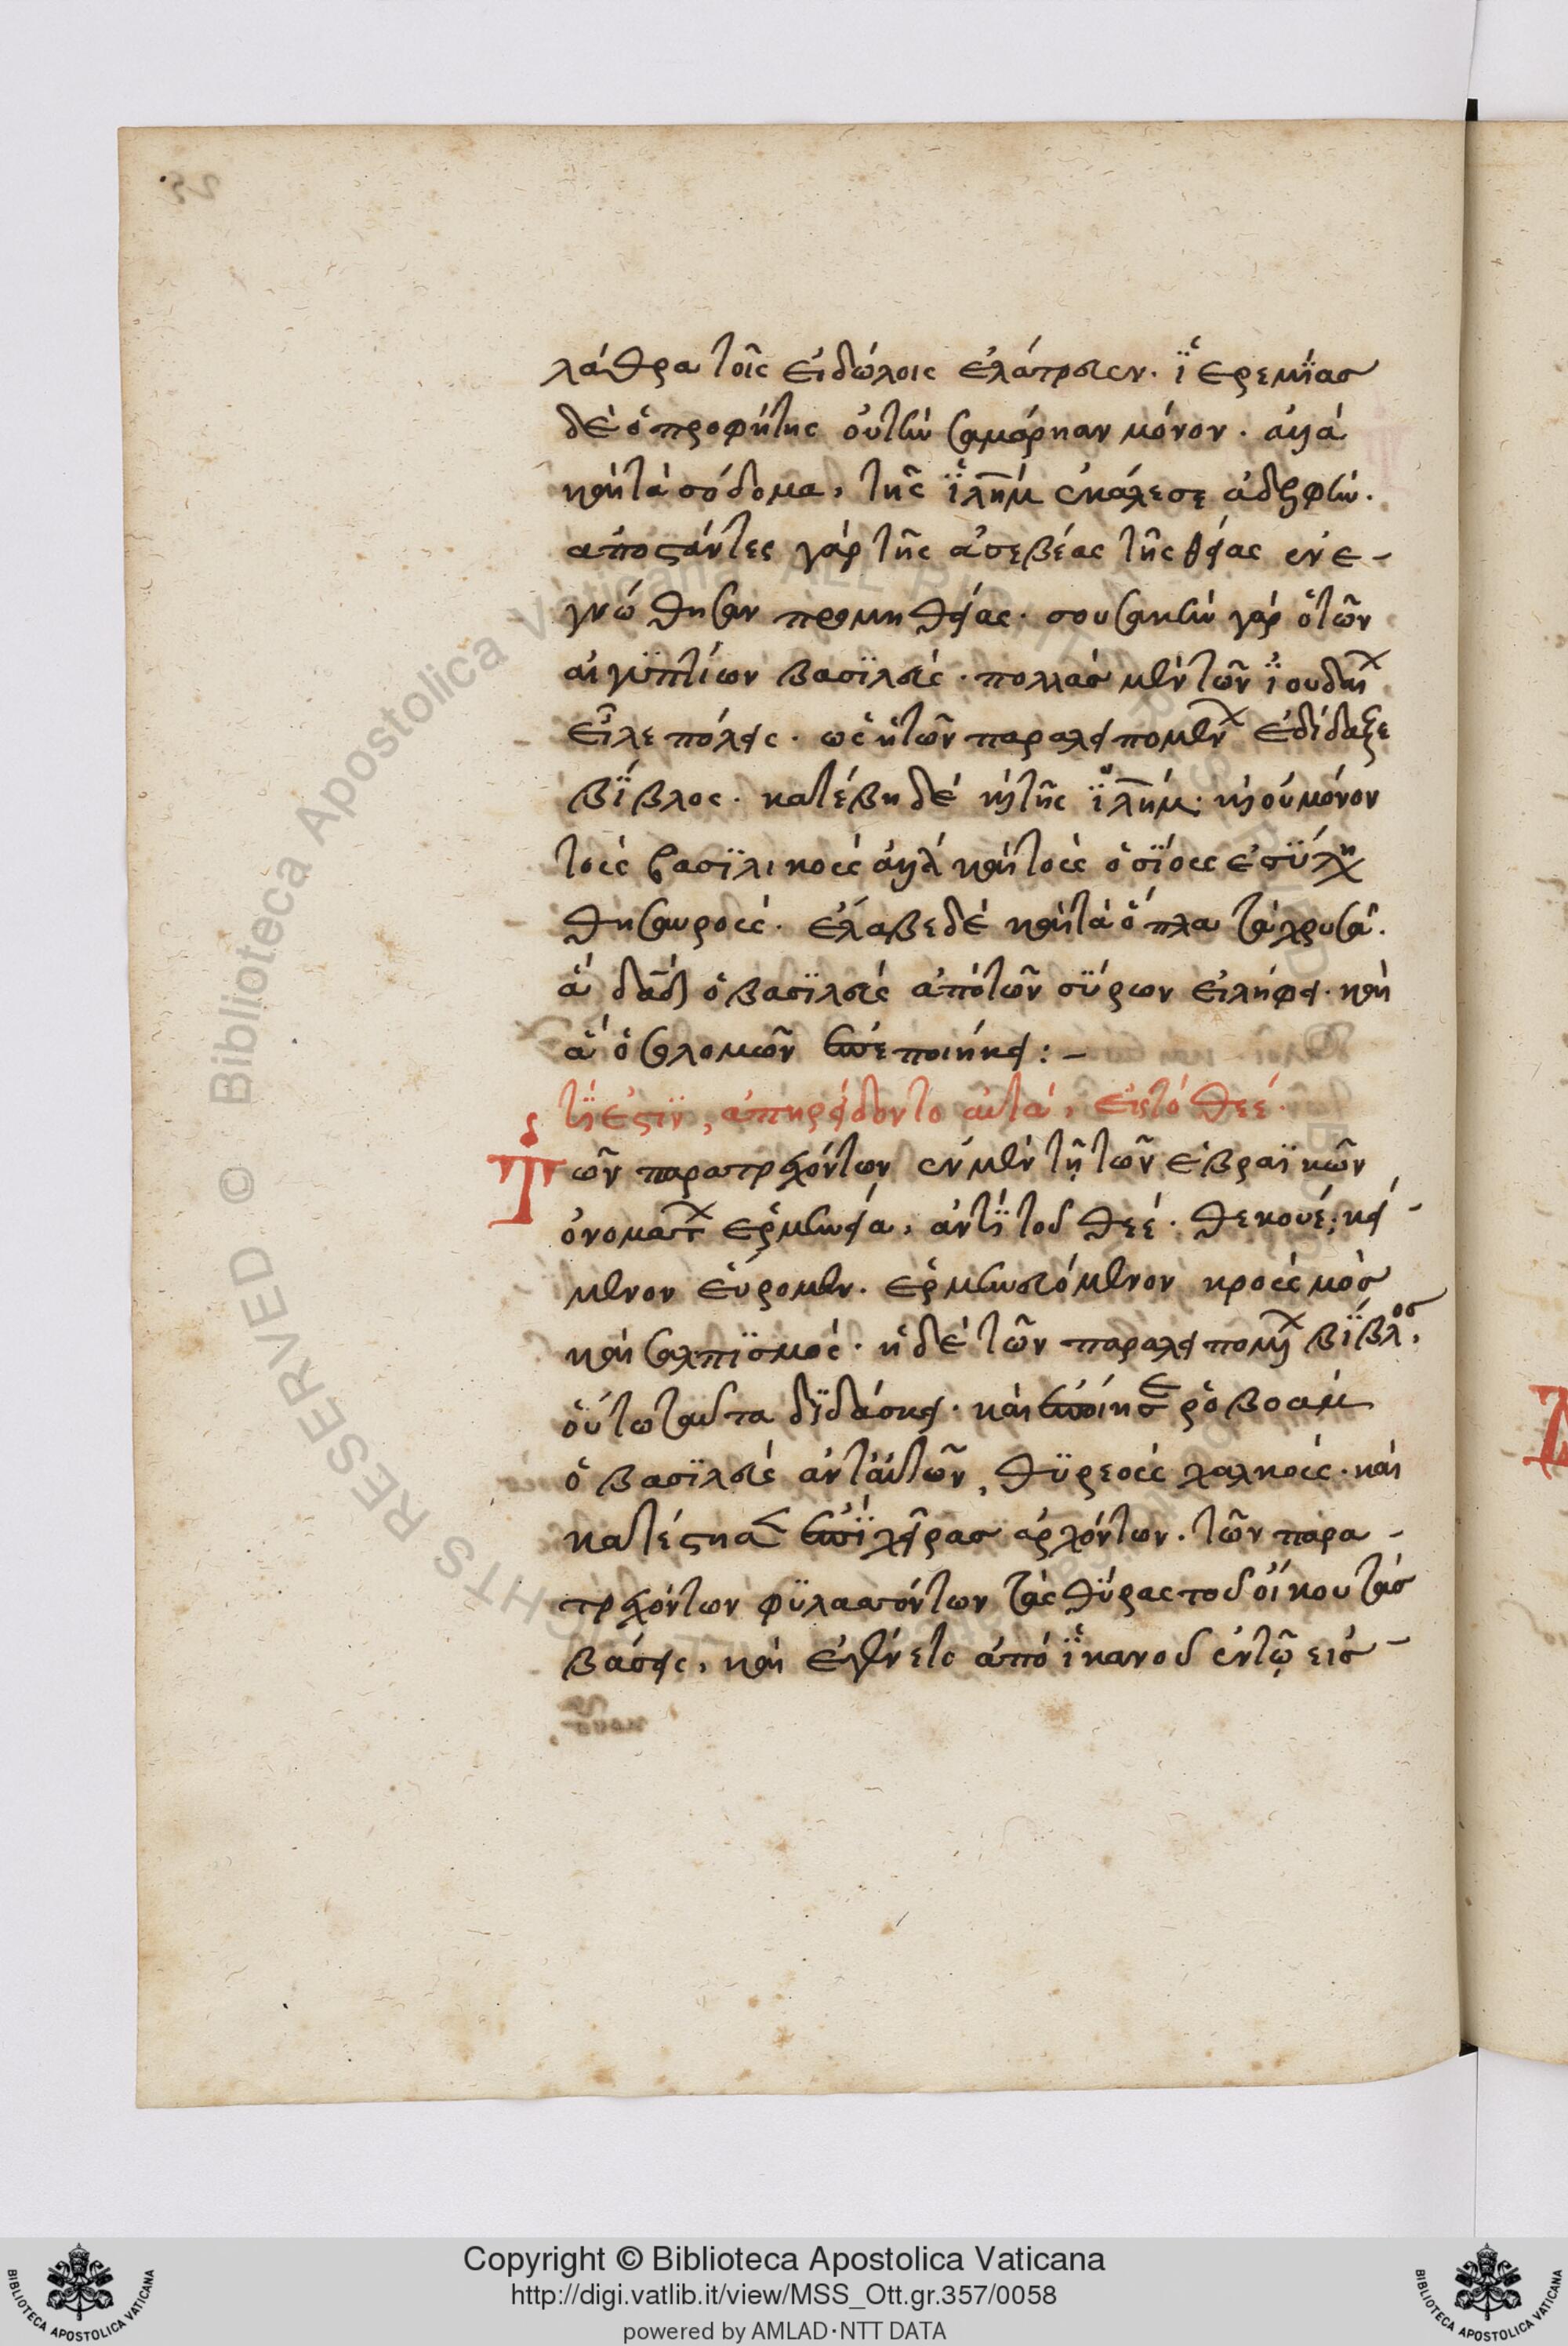 λάθρα τοῖς εἰδώλοις ἐλάτρευεν. ἱερεμίας
δὲ ὁ προφήτης οὐ τὴν σαμάρηαν μόνον. ἀλλὰ
καὶ τὰ σόδομα, τῆς ἱλημ ἐκάλεσε ἀδελφὴν.
ἀποστάντες γὰρ τῆς ἀσεβέας τῆς θείας ἐνε-
γνώθησαν προμηθείας. σουσακὴν γὰρ ὁ τῶν
αἰγυπτίων βασιλεὺς. πολλὰς μὲν τῶν ἰουδαι
εἷλε πόλεις. ὡς ἡ τῶν παραλειπομεν ἐδίδαξε
βίβλος. κατέβη δὲ κὴ τῆς ἱλημ. κὴ οὐ μόνον
τοὺς βασιλικοὺς ἀλλὰ καὶ τοὺς ὁσίους ἐσύλη
θησαυροὺς. ἔλαβε δὲ καὶ τὰ ὅπλα τὰ χρυσᾶ.
ἃ δαδ ὁ βασιλεὺς ἀπὸ τῶν σύρων εἰλήφει. καὶ
ἃ ὁ σαλομῶν ἐπεποιήκει: –
τί ἐστιν, ἀπηρείδοντο αὐτὰ, εἰς τὸ θεέ.
δ
Τῶν παρατρεχόντων ἐν μὲν τῇ τῶν ἑβραϊκῶν
ὀνοματ ἑρμηνεία, ἀντὶ τοῦ θεέ. θεκουέ; κεί-
μενον εὕρομεν. ἑρμηνευόμενον κρουσμὸς
καὶ σαλπισμός. ἡ δὲ τῶν παραλειπομ βίβλος,
οὕτω ταῦτα διδάσκει. καὶ ἐποίησε ῥοβοὰμ
ὁ βασιλεὺς ἀντ' αὐτῶν, θυρεοὺς χαλκοὺς. καὶ
κατέστησ ἐπὶ χεῖρας ἀρχόντων. τῶν παρα-
τρεχόντων φυλασσόντων τὰς θύρας τοῦ οἴκου τὰς
βάσεις, καὶ ἐγένετο ἀπὸ ἱκανοῦ ἐν τῷ εἰσ-
Copyright © Biblioteca Apostolica Vaticana
http://digi.vatlib.it/view/MSS_Ott.gr.357/0058
powered by AMLAD·NTT DATA
BIBLIOTECA APOSTOLICA VATICANA
BIBLIOTECA APOSTOLICA VATICANA